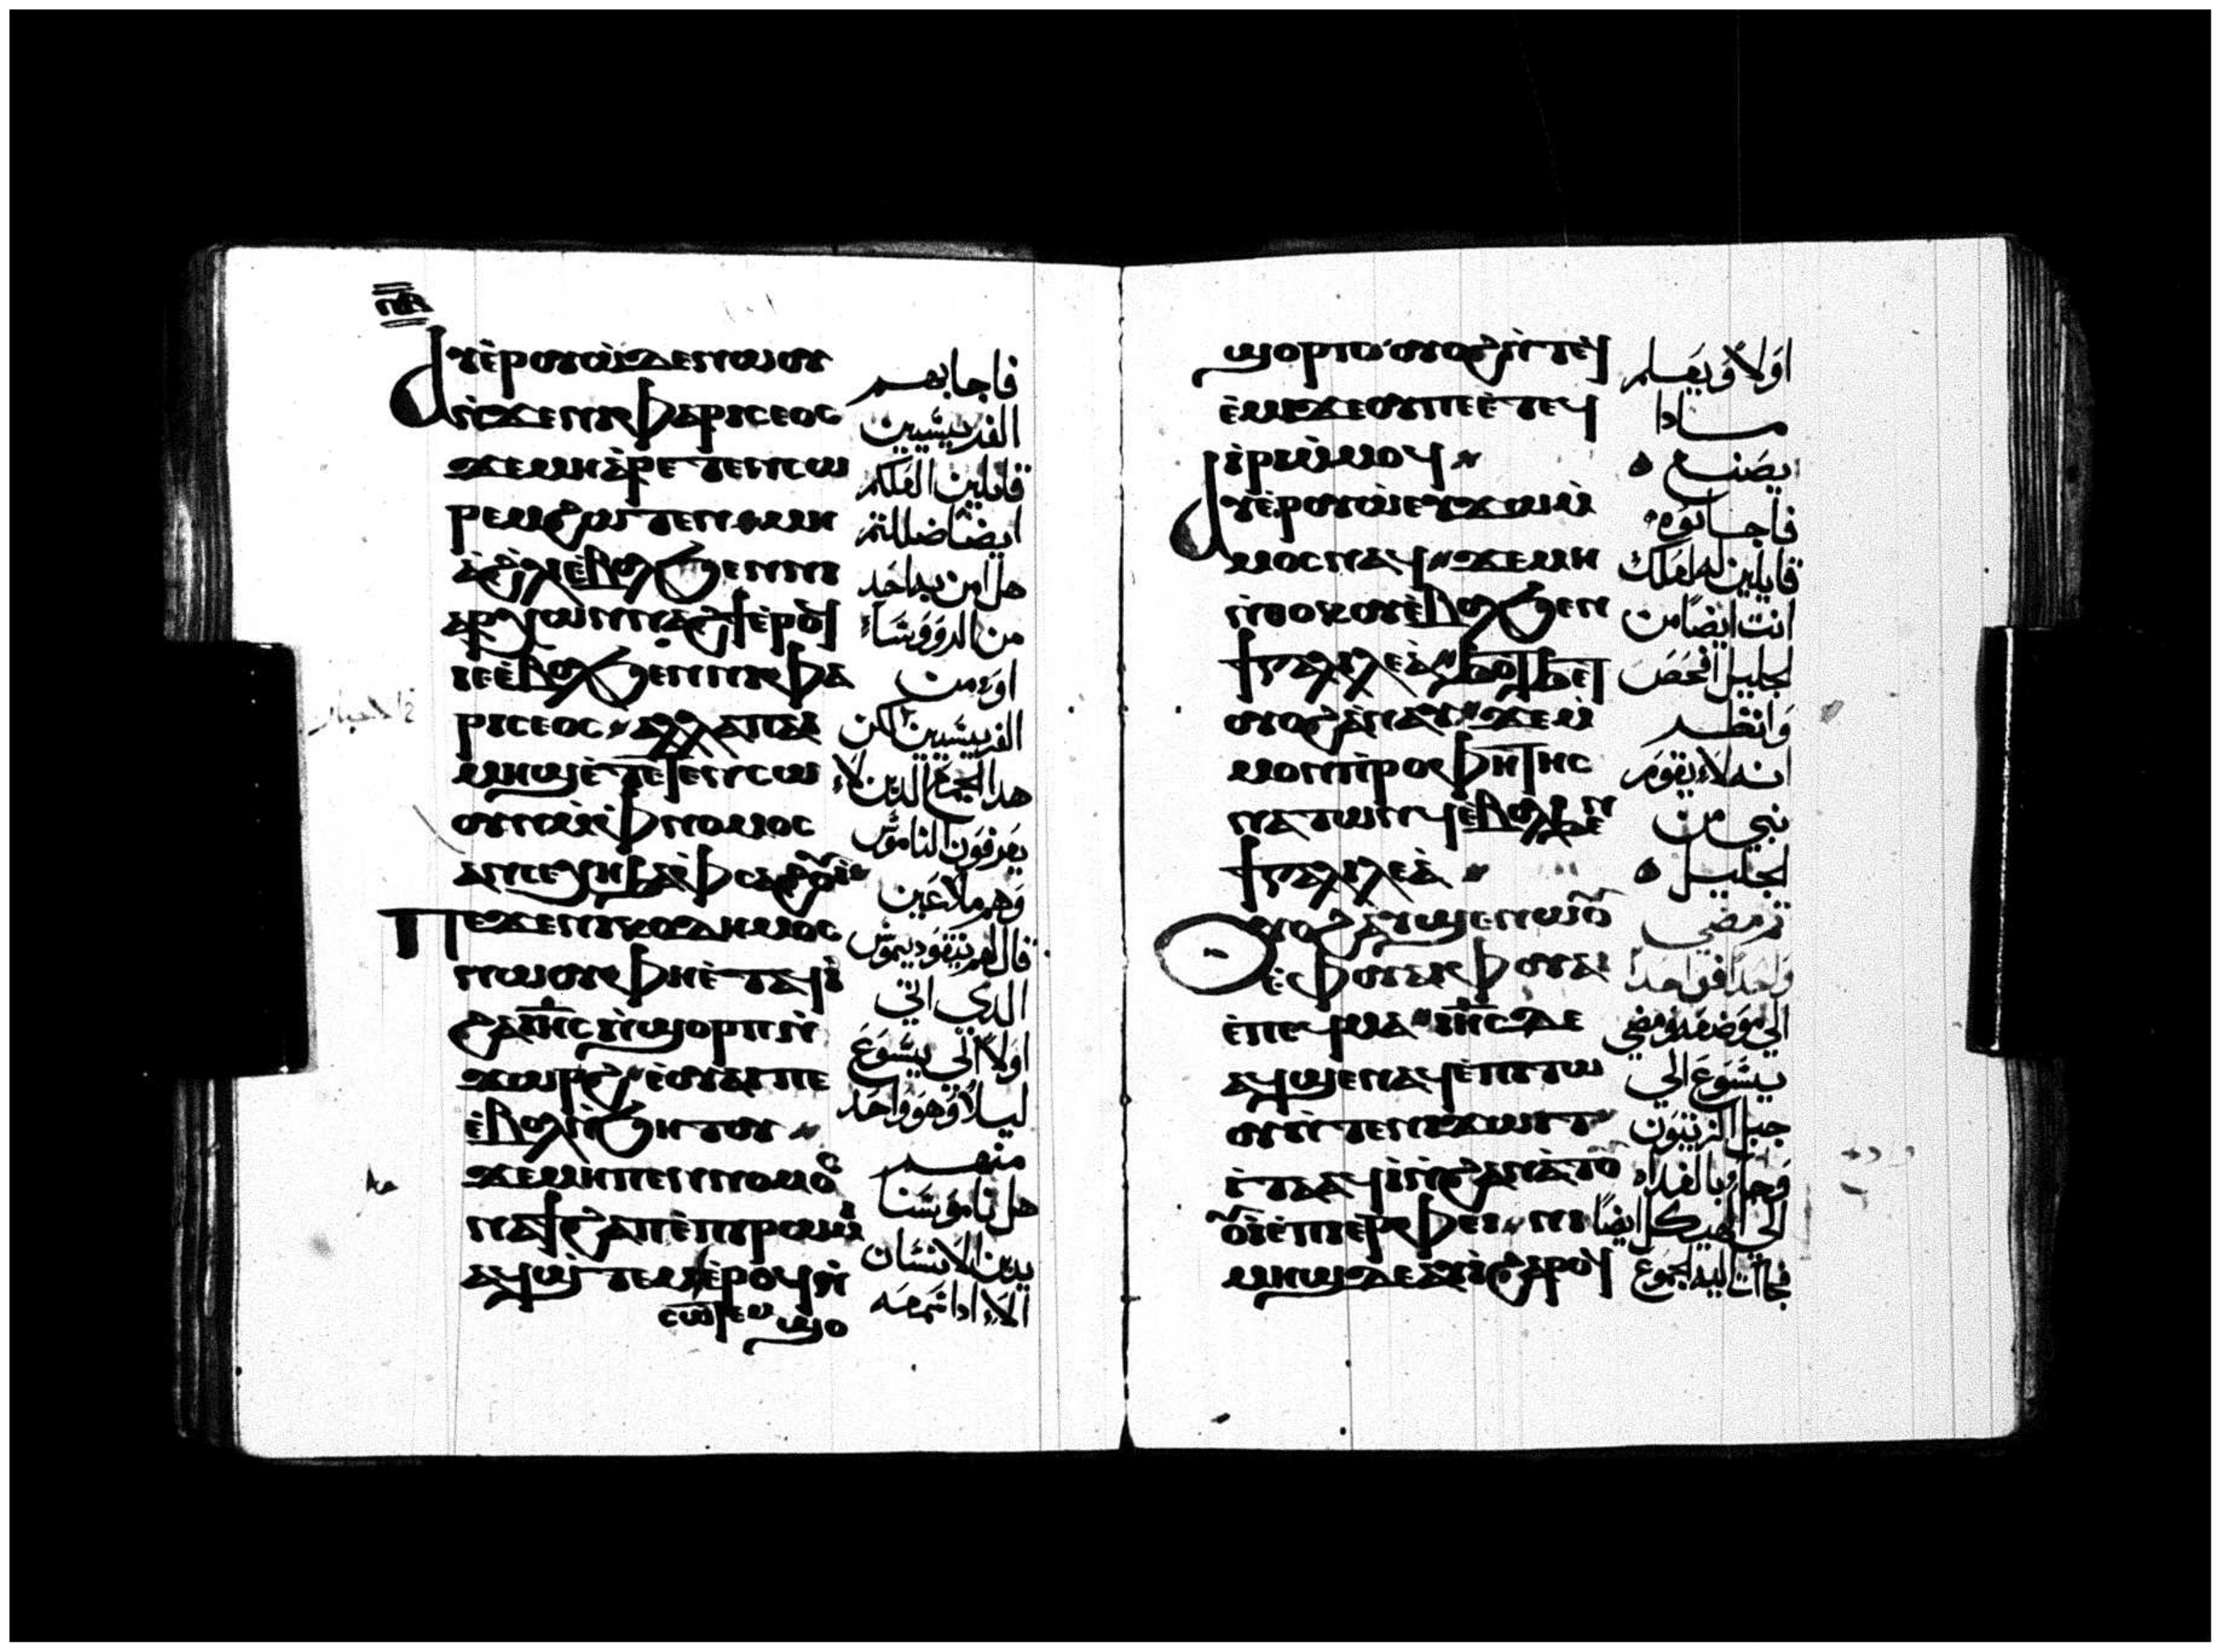 ⲡⲃ
ⲁⲩⲉⲣⲟⲩⲱ ⲇⲉ ⲛⲱⲟⲩ
ⲛϫⲉⲛⲓⲫⲁⲣⲓⲥⲉⲟⲥ
ϫⲉⲙⲏ ⲁⲣⲉⲧⲉⲛⲥⲱ
ⲣⲉⲙ ϩⲱⲧⲉⲛ ⲙⲏ
ⲁϩⲗⲓ ⲉⲃⲟⲗϧⲉⲛⲛⲓ
ⲁⲣⲭⲱⲛ ⲛⲁϩϯ ⲉⲣⲟϥ
ⲓⲉ ⲉⲃⲟⲗϧⲉⲛⲛⲓⲫⲁ
ⲣⲓⲥⲉⲟⲥ ⲁⲗⲗⲁ ⲡⲁⲓ
ⲙⲏϣ ⲉⲧⲉⲛⲥⲉⲥⲱ
ⲟⲩⲛ ⲙⲫⲛⲟⲙⲟⲥ
ⲁⲛ ⲥⲉⲭⲏ ϧⲁ ⲡⲥⲁϩⲟⲩⲓ
ⲡⲉϫⲉ ⲛⲓⲕⲟⲇⲏⲙⲟⲥ
ⲛⲱⲟⲩ ⲫⲏⲉⲧⲁϥⲓ
ϩⲁ ⲓⲏⲥ ⲛϣⲟⲣⲡ ⲛ
ϫⲱⲣϩ ⲉⲟⲩⲁⲓ ⲡⲉ
ⲉⲃⲟⲗⲛϧⲏⲧⲟⲩ
ϫⲉⲙⲏ ⲡⲉⲛⲛⲟⲙⲟⲥ
ⲛⲁϯϩⲁⲡ ⲉⲡⲓⲣⲱⲙⲓ
ⲁϥϣⲧⲉⲙ ⲉⲣⲟϥ ⲛ
ⲥⲱⲧⲉⲙ ϣⲟ
فاجابهم
الفريسيين
قايلين العلكم
ايضا ضللتم
هل امن به احد
من الرووسا
او من
الفريسيين لكن
هدا الجمع الدين لا
يعرفون الناموس
وهم ملاعين
قال لهم نيقوديموس
الدي اتي
اولا الي يسوع
ليلا وهو واحد
منهم
هل ناموسنا
يدين الانسان
الا ادا سمعه
ϣⲟⲣⲡ ⲟⲩⲟϩ ⲛⲧⲉϥ
ⲉⲙⲓ ϫⲉ ⲟⲩ ⲡⲉⲉⲧⲉϥ
ⲓⲣⲓ ⲙⲙⲟϥ
ⲁⲩⲉⲣⲟⲩⲱ ⲉⲩϫⲱⲙ
ⲙⲟⲥ ⲛⲁϥ ϫⲉⲙⲏ
ⲛⲑⲟⲕ ⲟⲩⲉⲃⲟⲗϧⲉⲛ
ϯⲅⲁⲗⲓⲗⲉⲁ ϧⲟⲧϧⲉⲧ
ⲟⲩⲟϩ ⲁⲛⲁⲩ ϫⲉⲙ
ⲙⲟⲛ ⲡⲣⲟⲫⲏⲧⲏⲥ
ⲛⲁⲧⲱⲛϥ ⲉⲃⲟⲗϧⲉⲛ
ϯⲅⲁⲗⲓⲗⲉⲁ
ⲟⲩⲟϩ ⲁⲩϣⲉⲛⲱⲟⲩ
ⲉ ⲫⲟⲩⲁⲓ ⲫⲟⲩⲁⲓ
ⲉⲡⲉϥⲙⲁ ⲓⲏⲥ ⲇⲉ
ⲁϥϣⲉⲛⲁϥ ⲉⲡⲓⲧⲱ
ⲟⲩ ⲛⲧⲉⲛⲓϫⲱⲓⲧ
ⲉⲧⲁϥⲓ ⲛϩⲁⲛⲁⲧⲟ
ⲟⲩⲓ ⲉⲡⲓⲉⲣⲫⲉⲓ ⲡⲓ
ⲙⲏϣ ⲇⲉ ⲁϥⲓ ϩⲁⲣⲟϥ
اولا ويعلم
مادا
يصنع
فاجابوه
قايلين له لعلك
انت ايضا من
لجليل افحص
وانظر
انه لا يقوم
نبي من
لجليل
ثم مضي
واحدا فواحدا
الي موضعه ومضي
يسوع الي
جبل الزيتون
وجا وبالغداه
الي الهيكل ايضا
فاتا اليه الجموع